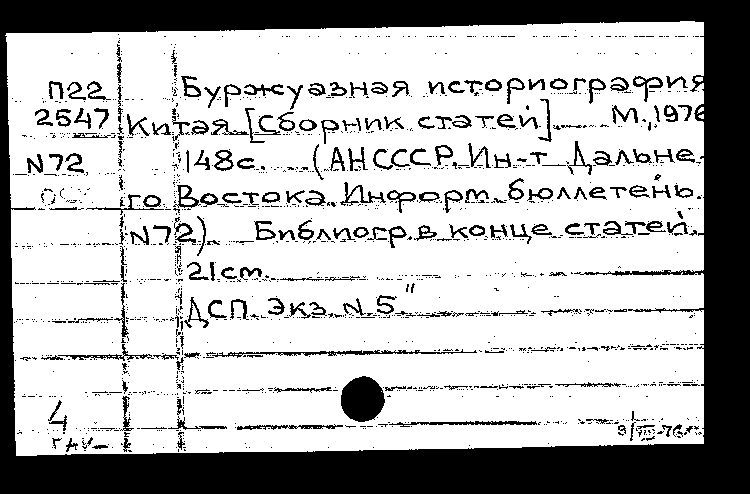 П22 Буржуазная историография
2547 Китая [Сборник статей]. М., 1976
N72 148с. (АН СССР. Ин-т Дальне-
го Востока. Информ. бюллетень.
N72). Библиогр. в конце статей.
21см.
ДСП. Экз. N 5."
4
9/VIII-76